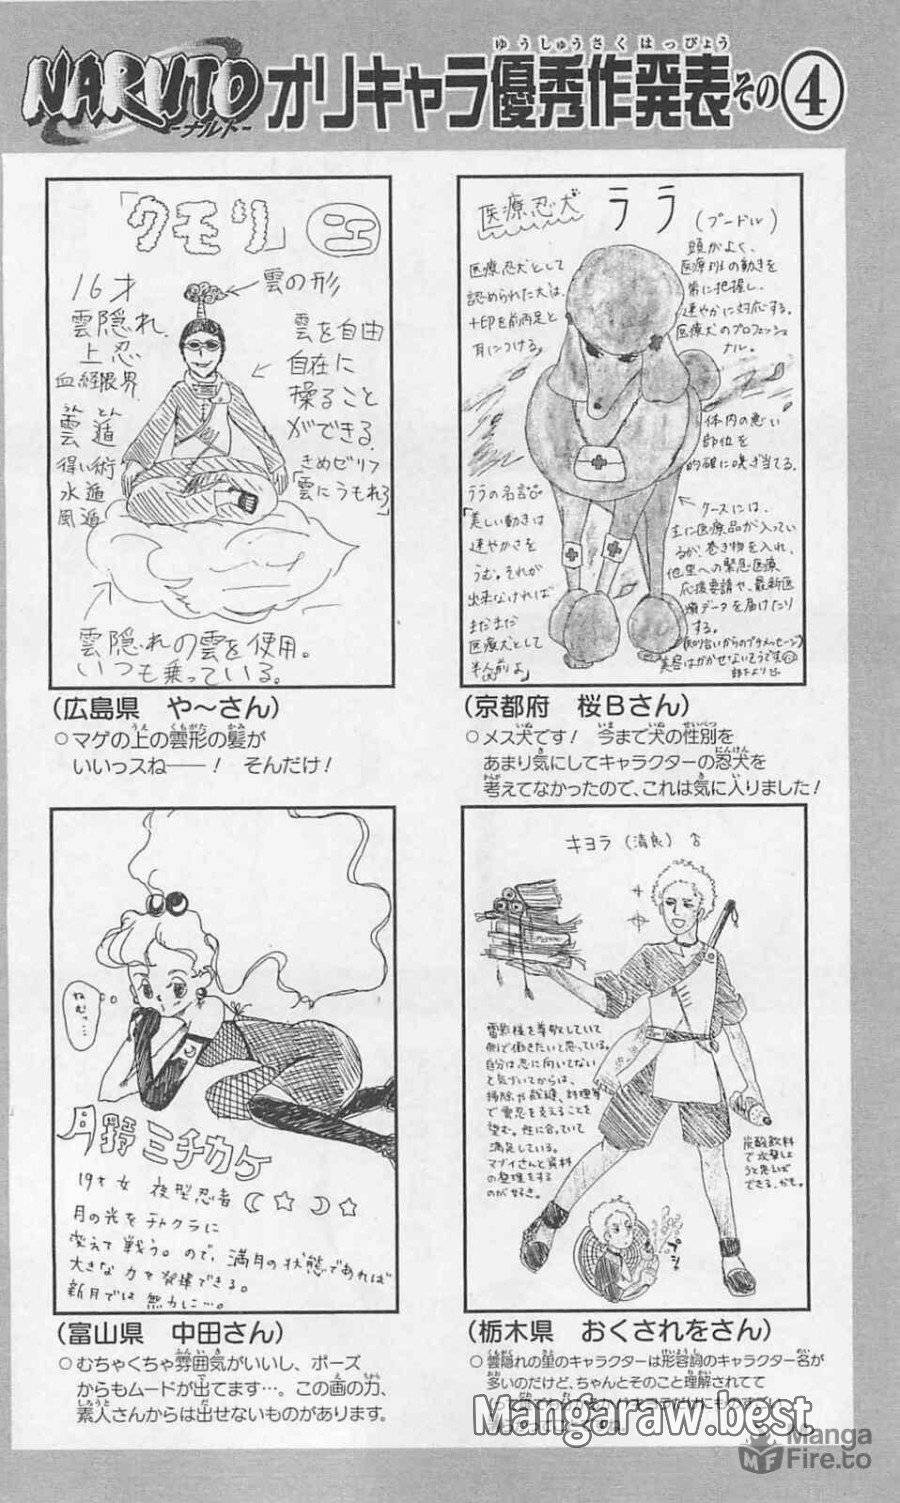 ゆうしゅうさくはっぴょう
NARUTO
-ナルト-
オリキャラ優秀作発表その④
「クモリ」
16才
雲隠れ
上忍
血経限界
うん とん
雲遁
得い術
水遁
風遁
雲の形
雲を自由
自在に
操ること
ができる
きめゼリフ
「雲にうもれろ」
雲隠れの雲を使用。
いつも乗っている。
(広島県 や〜さん)
○マゲの上の雲形の髪が
いいっスね――! そんだけ!
医療忍犬 ララ (プードル)
医療忍犬として
認められた犬は、
十印を前両足と
耳につける。
頭がよく、
医療班の動きを
常に把握し、
速やかに対応する。
医療犬のプロフェッショ
ナル。
体内の悪い
部位を
的確に嗅ぎ当てる。
ララの名言
「美しい動きは
速やかさを
うむ。それが
出来なければ
まだまだ
医療犬として
半人前よ」
ケースには、
主に医療品が入ってい
るが、巻き物を入れ、
他里への緊急医療
応援要請や、最新医
療データを届けたり
する。
(京都府 桜Bさん)
○メス犬です! 今まで犬の性別を
あまり気にしてキャラクターの忍犬を
考えてなかったので、これは気に入りました!
ねむっ…
月野ミチカケ
19才 女 夜型忍者
月の光をチャクラに
変えて戦う。ので、満月の状態であれば
大きな力を発揮できる。
新月では無力に…。
(富山県 中田さん)
○むちゃくちゃ雰囲気がいいし、ポーズ
からもムードが出てます…。この画の力、
素人さんからは出せないものがあります。
キヨラ(清良)♂
雷影様を尊敬していて
側で働きたいと思っている。
自分は忍に向いてない
と気づいてからは、
掃除や裁縫、料理等
で雲忍を支えることを
望む。性に合っていて
満足している。
マブイさんと資料
の整理をする
のが好き。
炭酸飲料
で攻撃しよ
うと思えば
できる、かも。
プシュ
(栃木県 おくされをさん)
○雲隠れの里のキャラクターは形容詞のキャラクター名が
多いのだけど、ちゃんとそのこと理解されてて
Mangaraw.best
MF
Manga
Fire.to